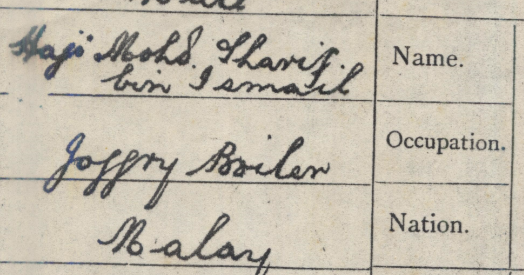 Haji Mohd. Sharif
bin Ismail
Name.
Joffry Boiler
Occupation.
Malay
Nation.